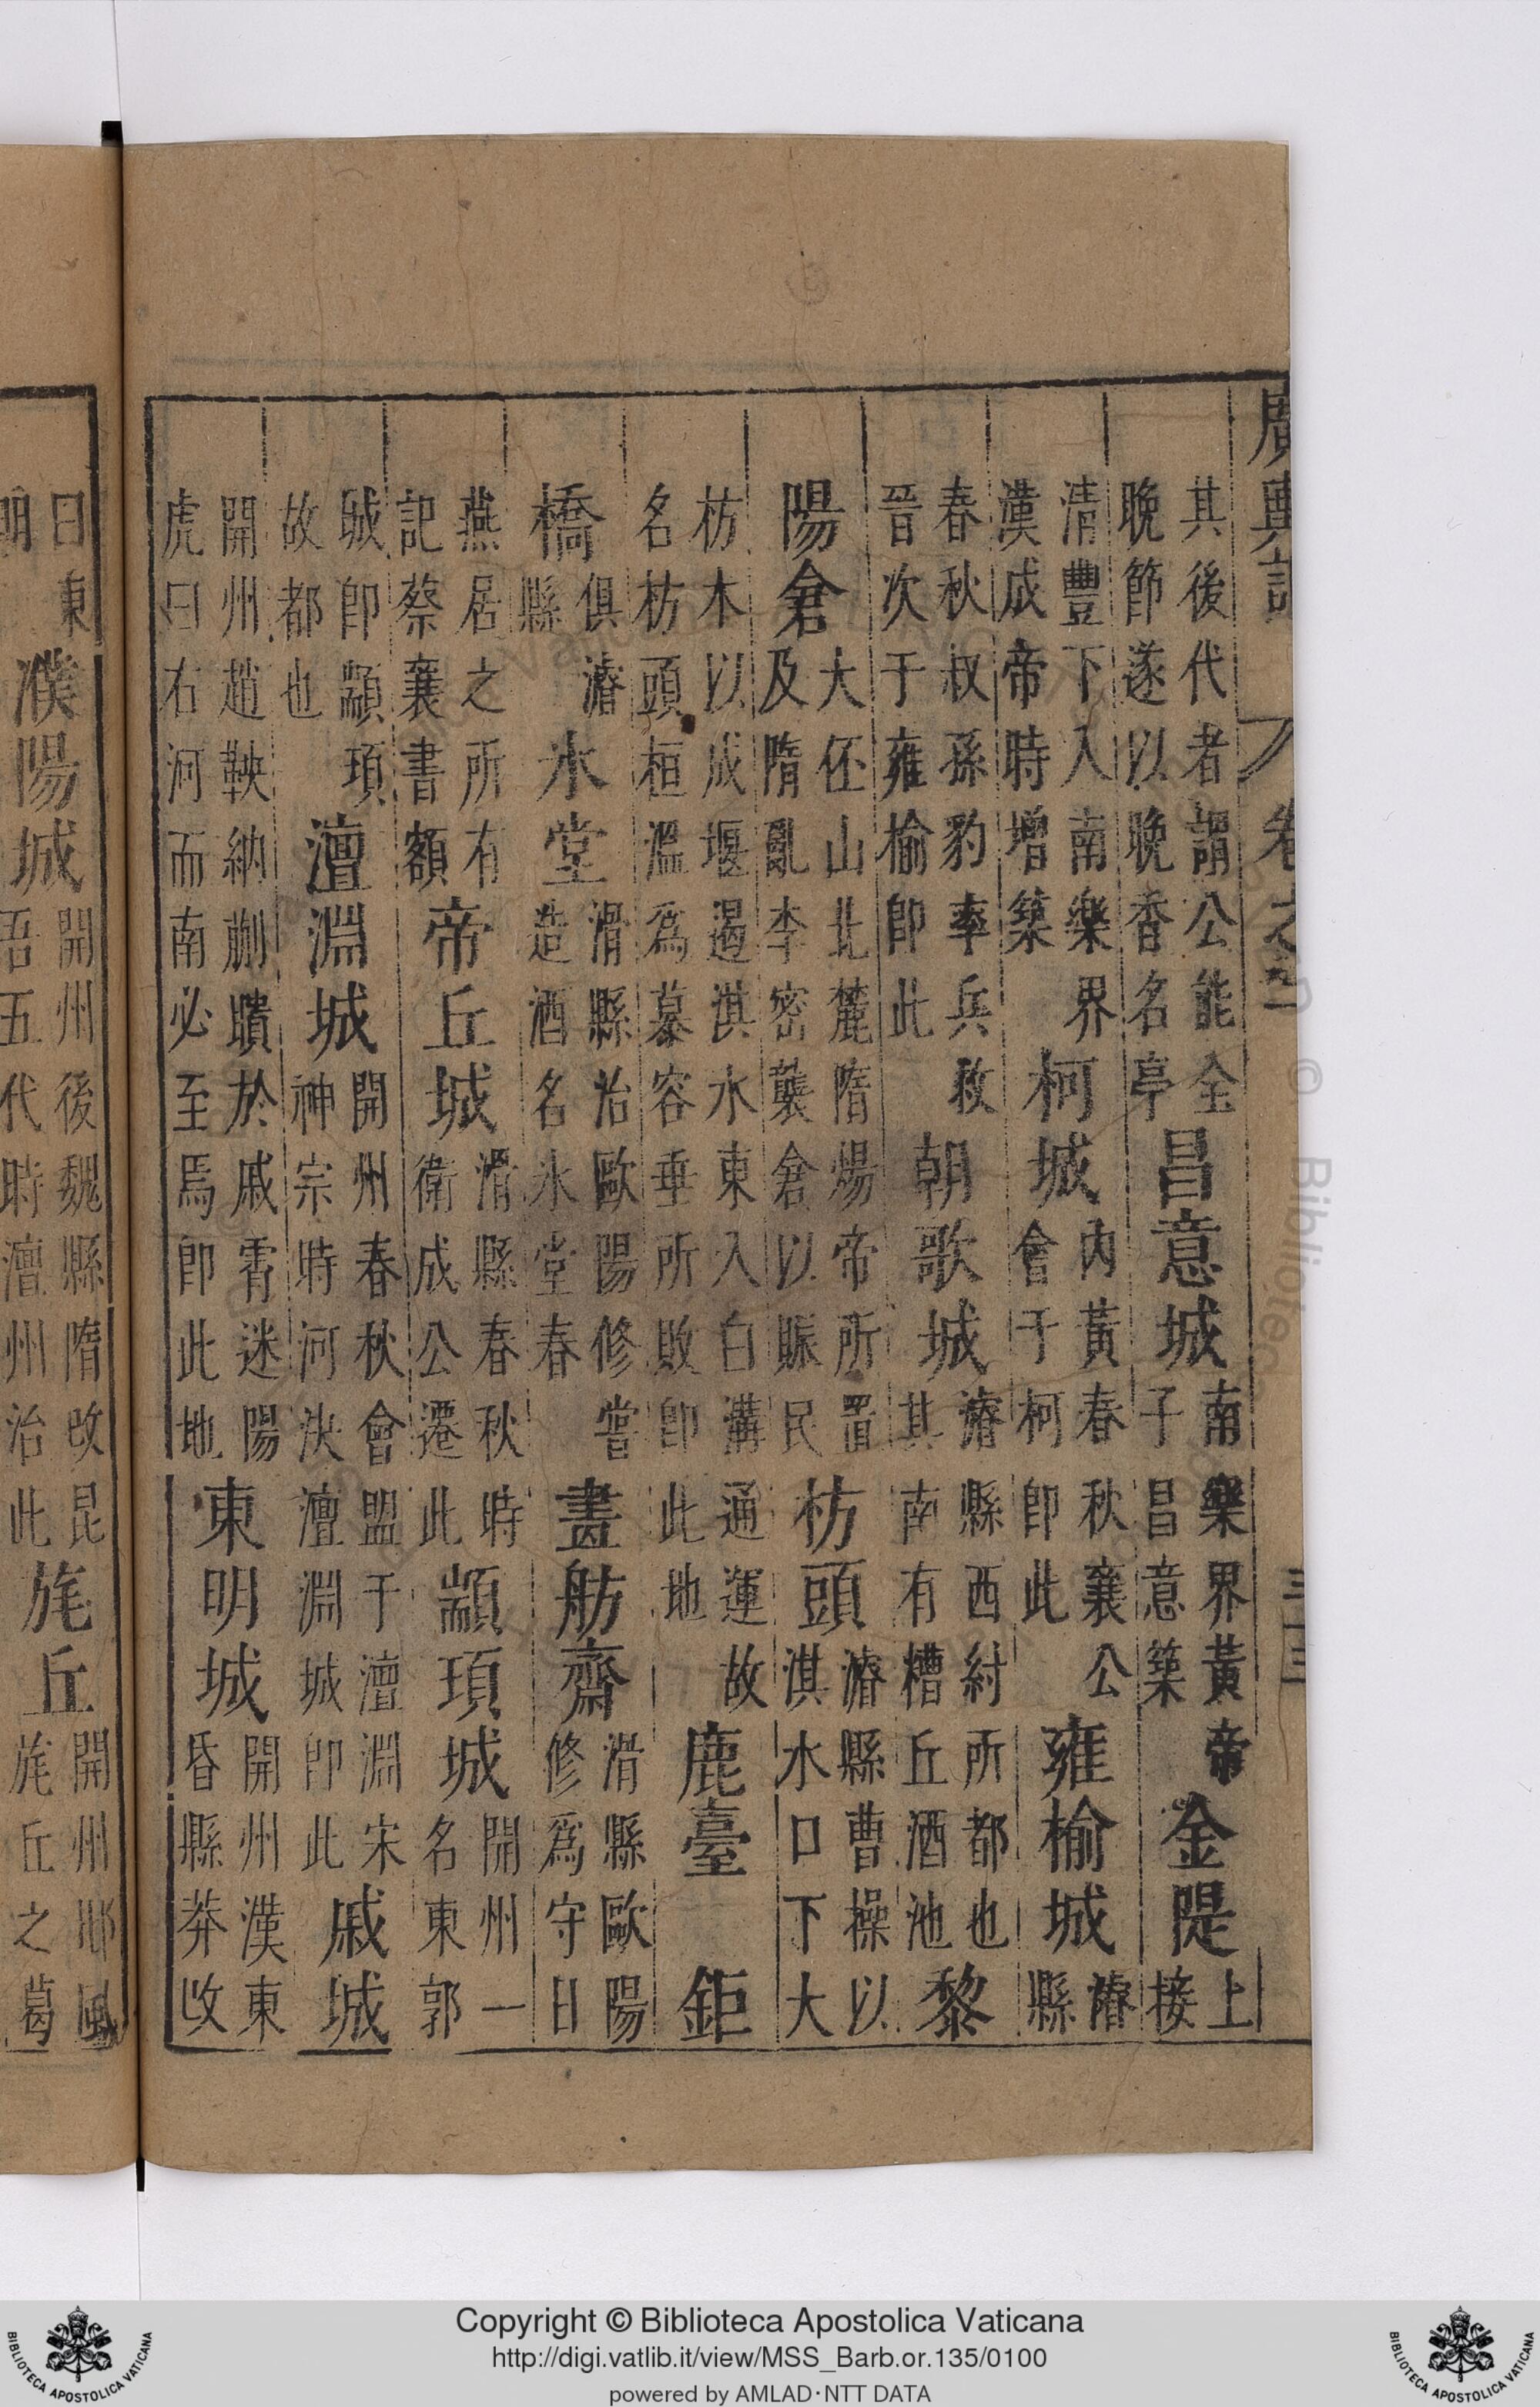 廣輿記 卷之
其後代者謂公能全晚節遂以晚香名亭 昌意城 南樂界黃帝子昌意築 金隄 上接
清豐下入南樂界漢成帝時增築 柯城 內黃春秋襄公會于柯即此 雍榆城 濬縣
春秋叔孫豹率兵救晉次于雍榆即此 朝歌城 濬縣西紂所都也其南有糟丘酒池 黎
陽倉 大伾山北麓隋煬帝所置及隋亂李密襲倉以賑民 枋頭 濬縣曹操以淇水口下大
枋木以成堰遏淇水東入白溝通運故名枋頭桓溫爲慕容垂所敗即此地 鹿臺 鉅
橋 俱濬縣 氷堂 滑縣治歐陽修嘗造酒名氷堂春 畫舫齋 滑縣歐陽修爲守日
燕居之所有記蔡襄書額 帝丘城 滑縣春秋時衛成公遷此 顓頊城 開州一名東郭
城即顓頊故都也 澶淵城 開州春秋會盟于澶淵宋神宗時河決澶淵城即此 戚城
開州趙鞅納蒯聵於戚宵迷陽虎曰右河而南必至焉即此地 東明城 開州漢東昏縣莽改
曰東明 濮陽城 開州後魏縣隋改昆吾五代時澶州治此 旄丘 開州邶風旄丘之葛
Copyright © Biblioteca Apostolica Vaticana
http://digi.vatlib.it/view/MSS_Barb.or.135/0100
powered by AMLAD·NTT DATA
BIBLIOTECA APOSTOLICA VATICANA
BIBLIOTECA APOSTOLICA VATICANA